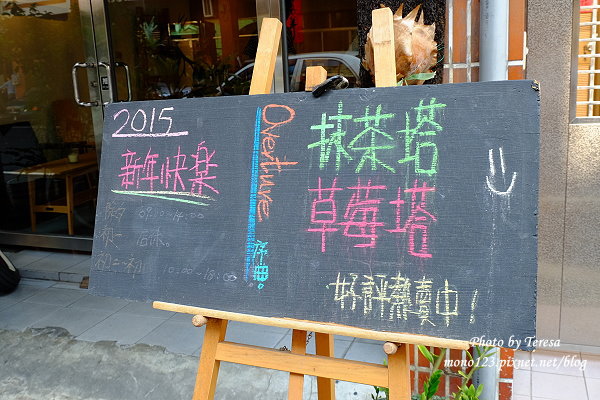 2015
新年快樂
09:00-14:00
10:00-18:00
Overture
序曲。
抹茶塔
草莓塔
好評熱賣中!
Photo by Teresa
mono123.pixnet.net/blog